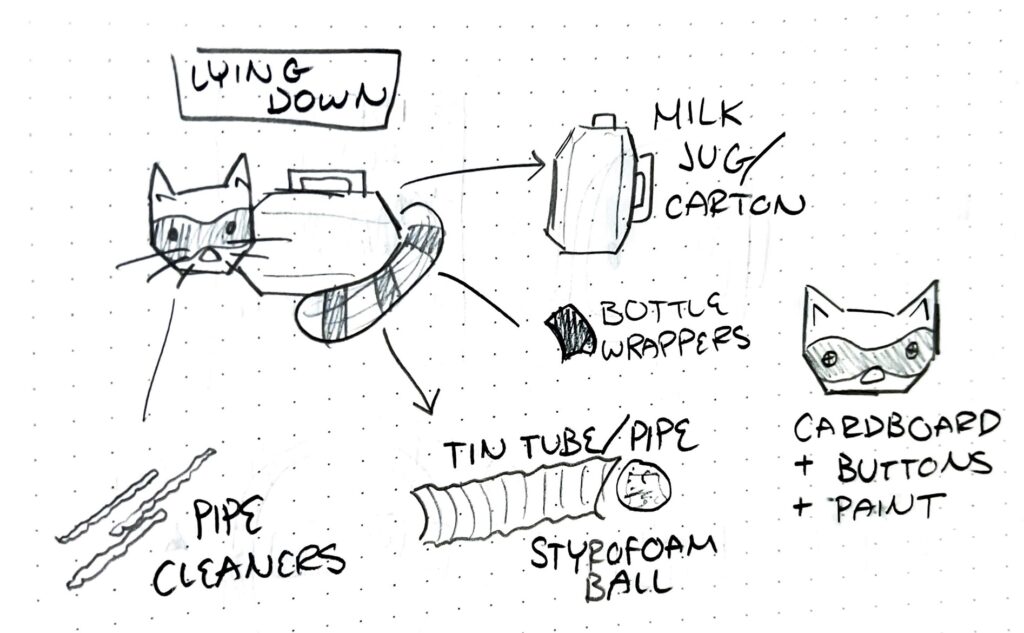 LYING
DOWN
MILK
JUG/
CARTON
BOTTLE
WRAPPERS
TIN TUBE/PIPE
STYROFOAM
BALL
PIPE
CLEANERS
CARDBOARD
+ BUTTONS
+ PAINT